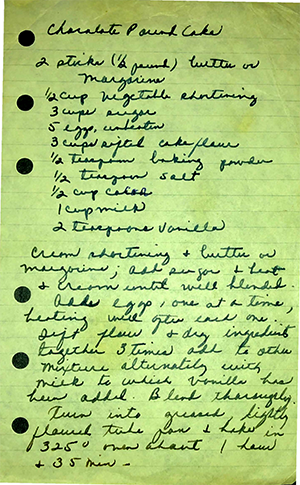 Chocolate Pound Cake
2 sticks (1/2 pound) butter or
margarine
1/2 cup vegetable shortening
3 cups sugar
5 eggs, unbeaten
3 cups sifted cake flour
1/2 teaspoon baking powder
1/2 teaspoon salt
1/2 cup cocoa
1 cup milk
2 teaspoons vanilla
Cream shortening & butter or
margarine; add sugar & beat
& cream until well blended.
Add eggs, one at a time,
beating well after each one.
Sift flour & dry ingredients
together 3 times add to other
mixture alternately with
milk to which vanilla has
been added. Blend thoroughly.
Turn into greased, lightly
floured tube pan & bake in
325° oven about 1 hour
& 35 min -